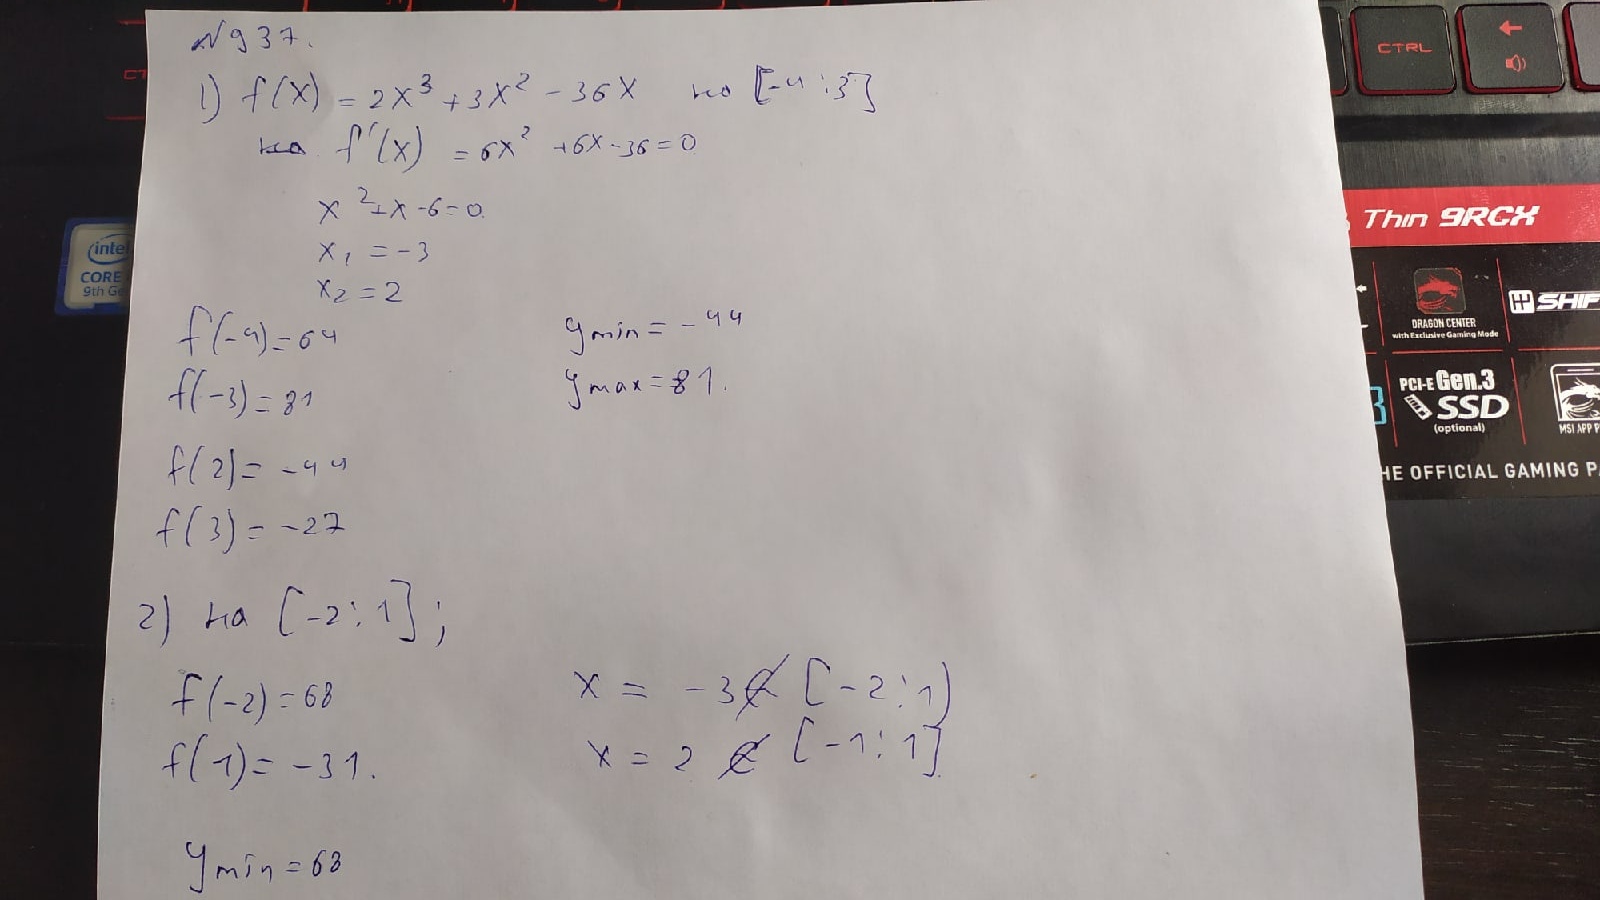 N 937.
1) f(x) = 2x³ + 3x² - 36x на [-4 ; 3]
на f'(x) = 6x² + 6x - 36 = 0
x² + x - 6 = 0
x₁ = -3
x₂ = 2
f(-4) = 64
f(-3) = 81
f(2) = -44
f(3) = -27
y min = -44
y max = 81.
2) на [-2 ; 1] ;
f(-2) = 68
f(1) = -31.
x = -3 ∉ [-2 ; 1)
x = 2 ∉ [-1 ; 1]
y min = 68
CTRL
Thin 9RCX
intel
CORE
9th Ge
DRAGON CENTER
with Exclusive Gaming Mode
SHIF
PCI-E Gen.3
SSD
(optional)
MSI APP P
HE OFFICIAL GAMING P